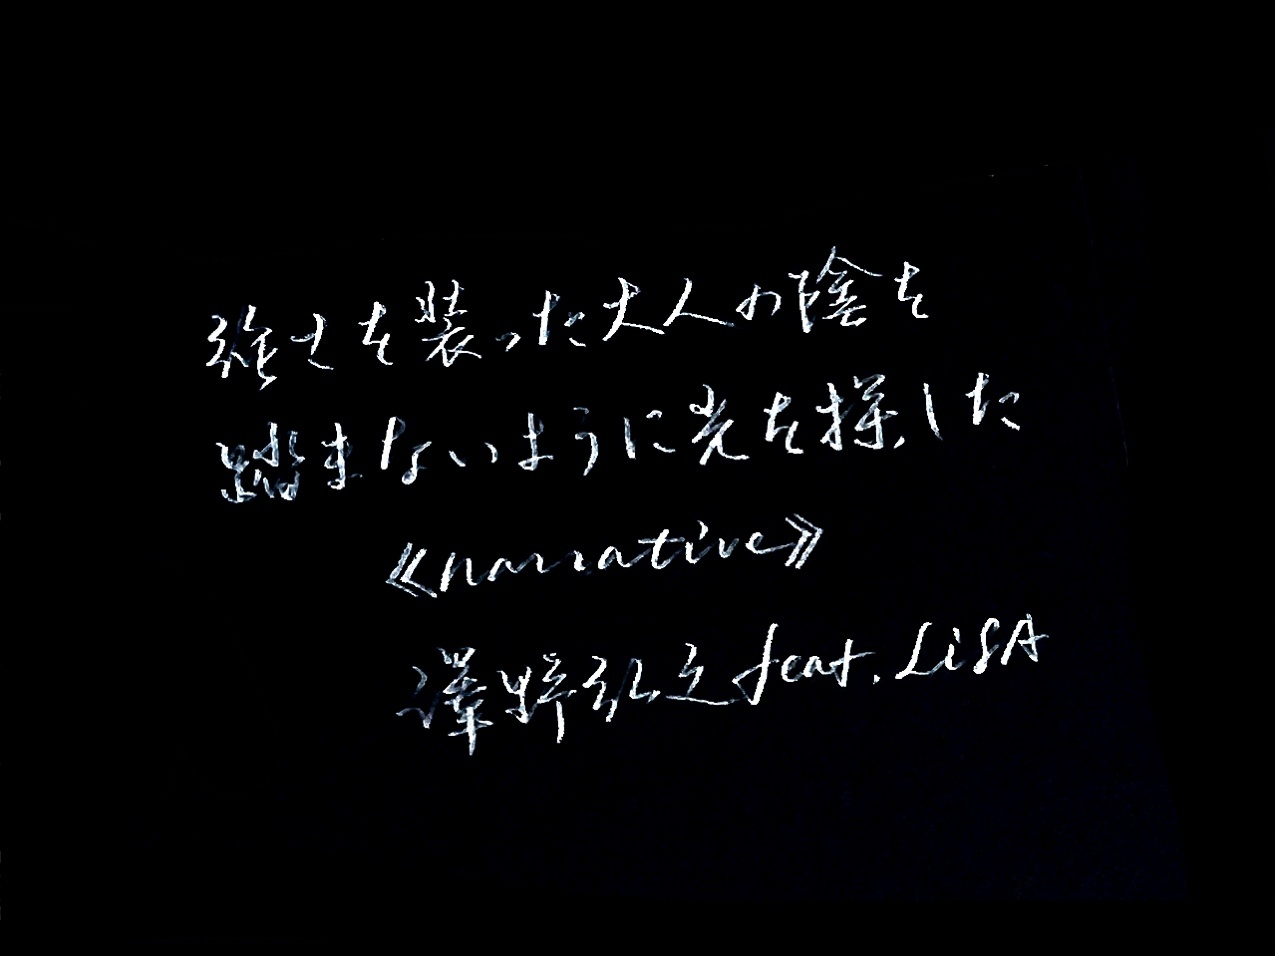 強さを装った大人の陰を
踏まないように光を探した
《narrative》
澤野弘之feat.LiSA